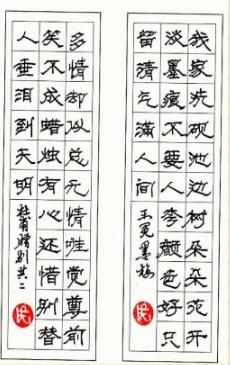 我家洗砚池边树朵朵花开
淡墨痕不要人夸颜色好只
留清气满人间
王冕墨梅
多情却似总无情唯觉尊前
笑不成蜡烛有心还惜别替
人垂泪到天明
赠别其二